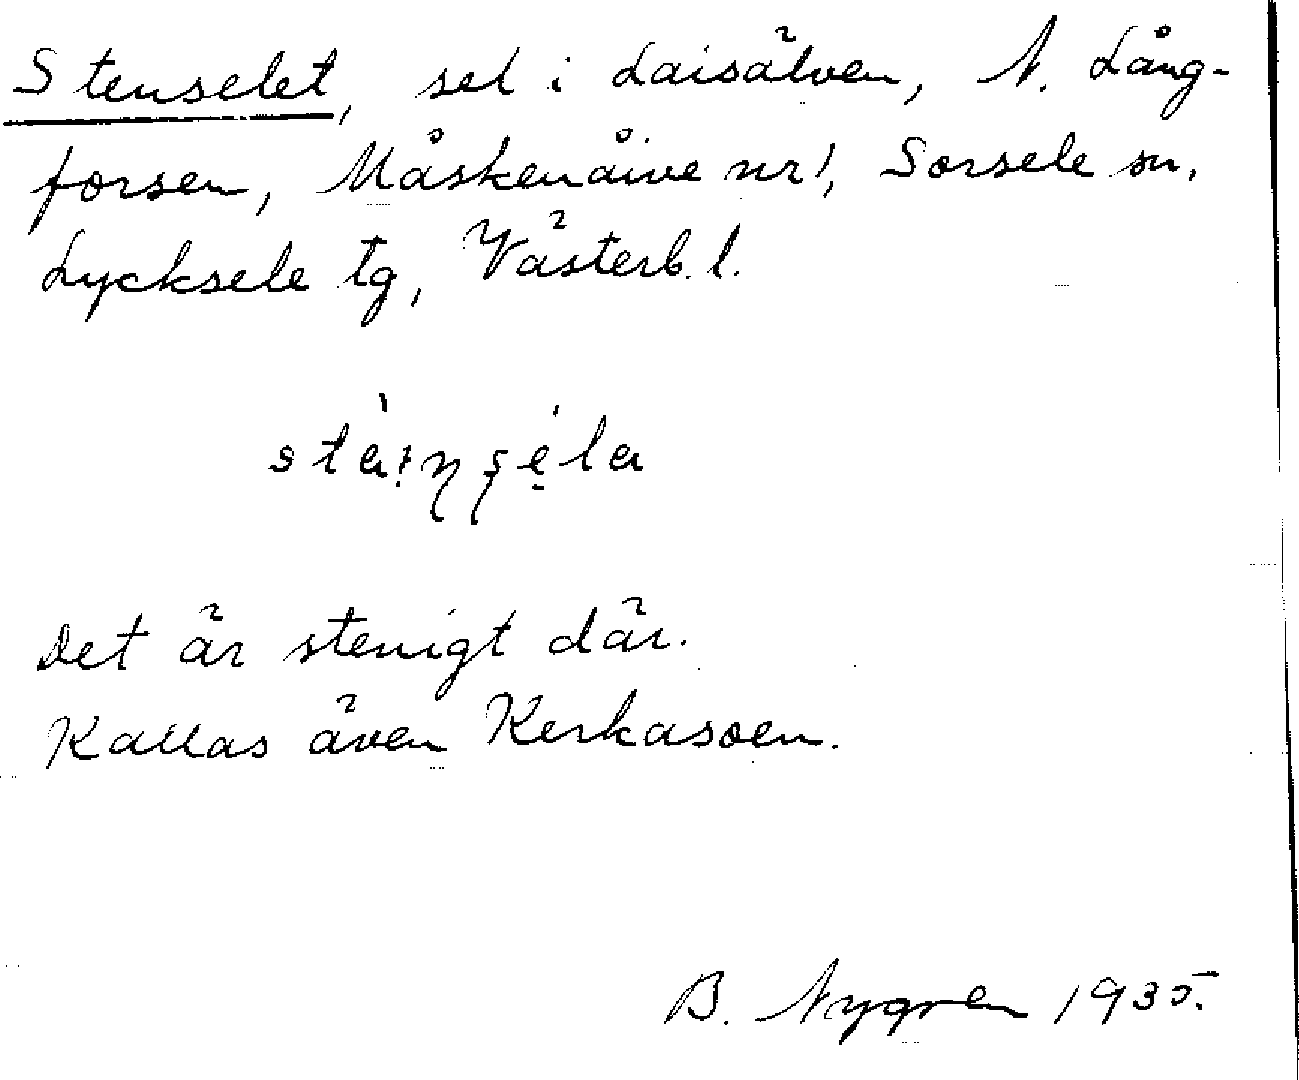 Stenselet, sel i Laisälven, N. Lång-
forsen, Måskenåive nr 1, Sorsele sn,
Lycksele tg, Västerb. l.
Det är stenigt där.
Kallas även Kerkasoen.
B. Nygren 1935.